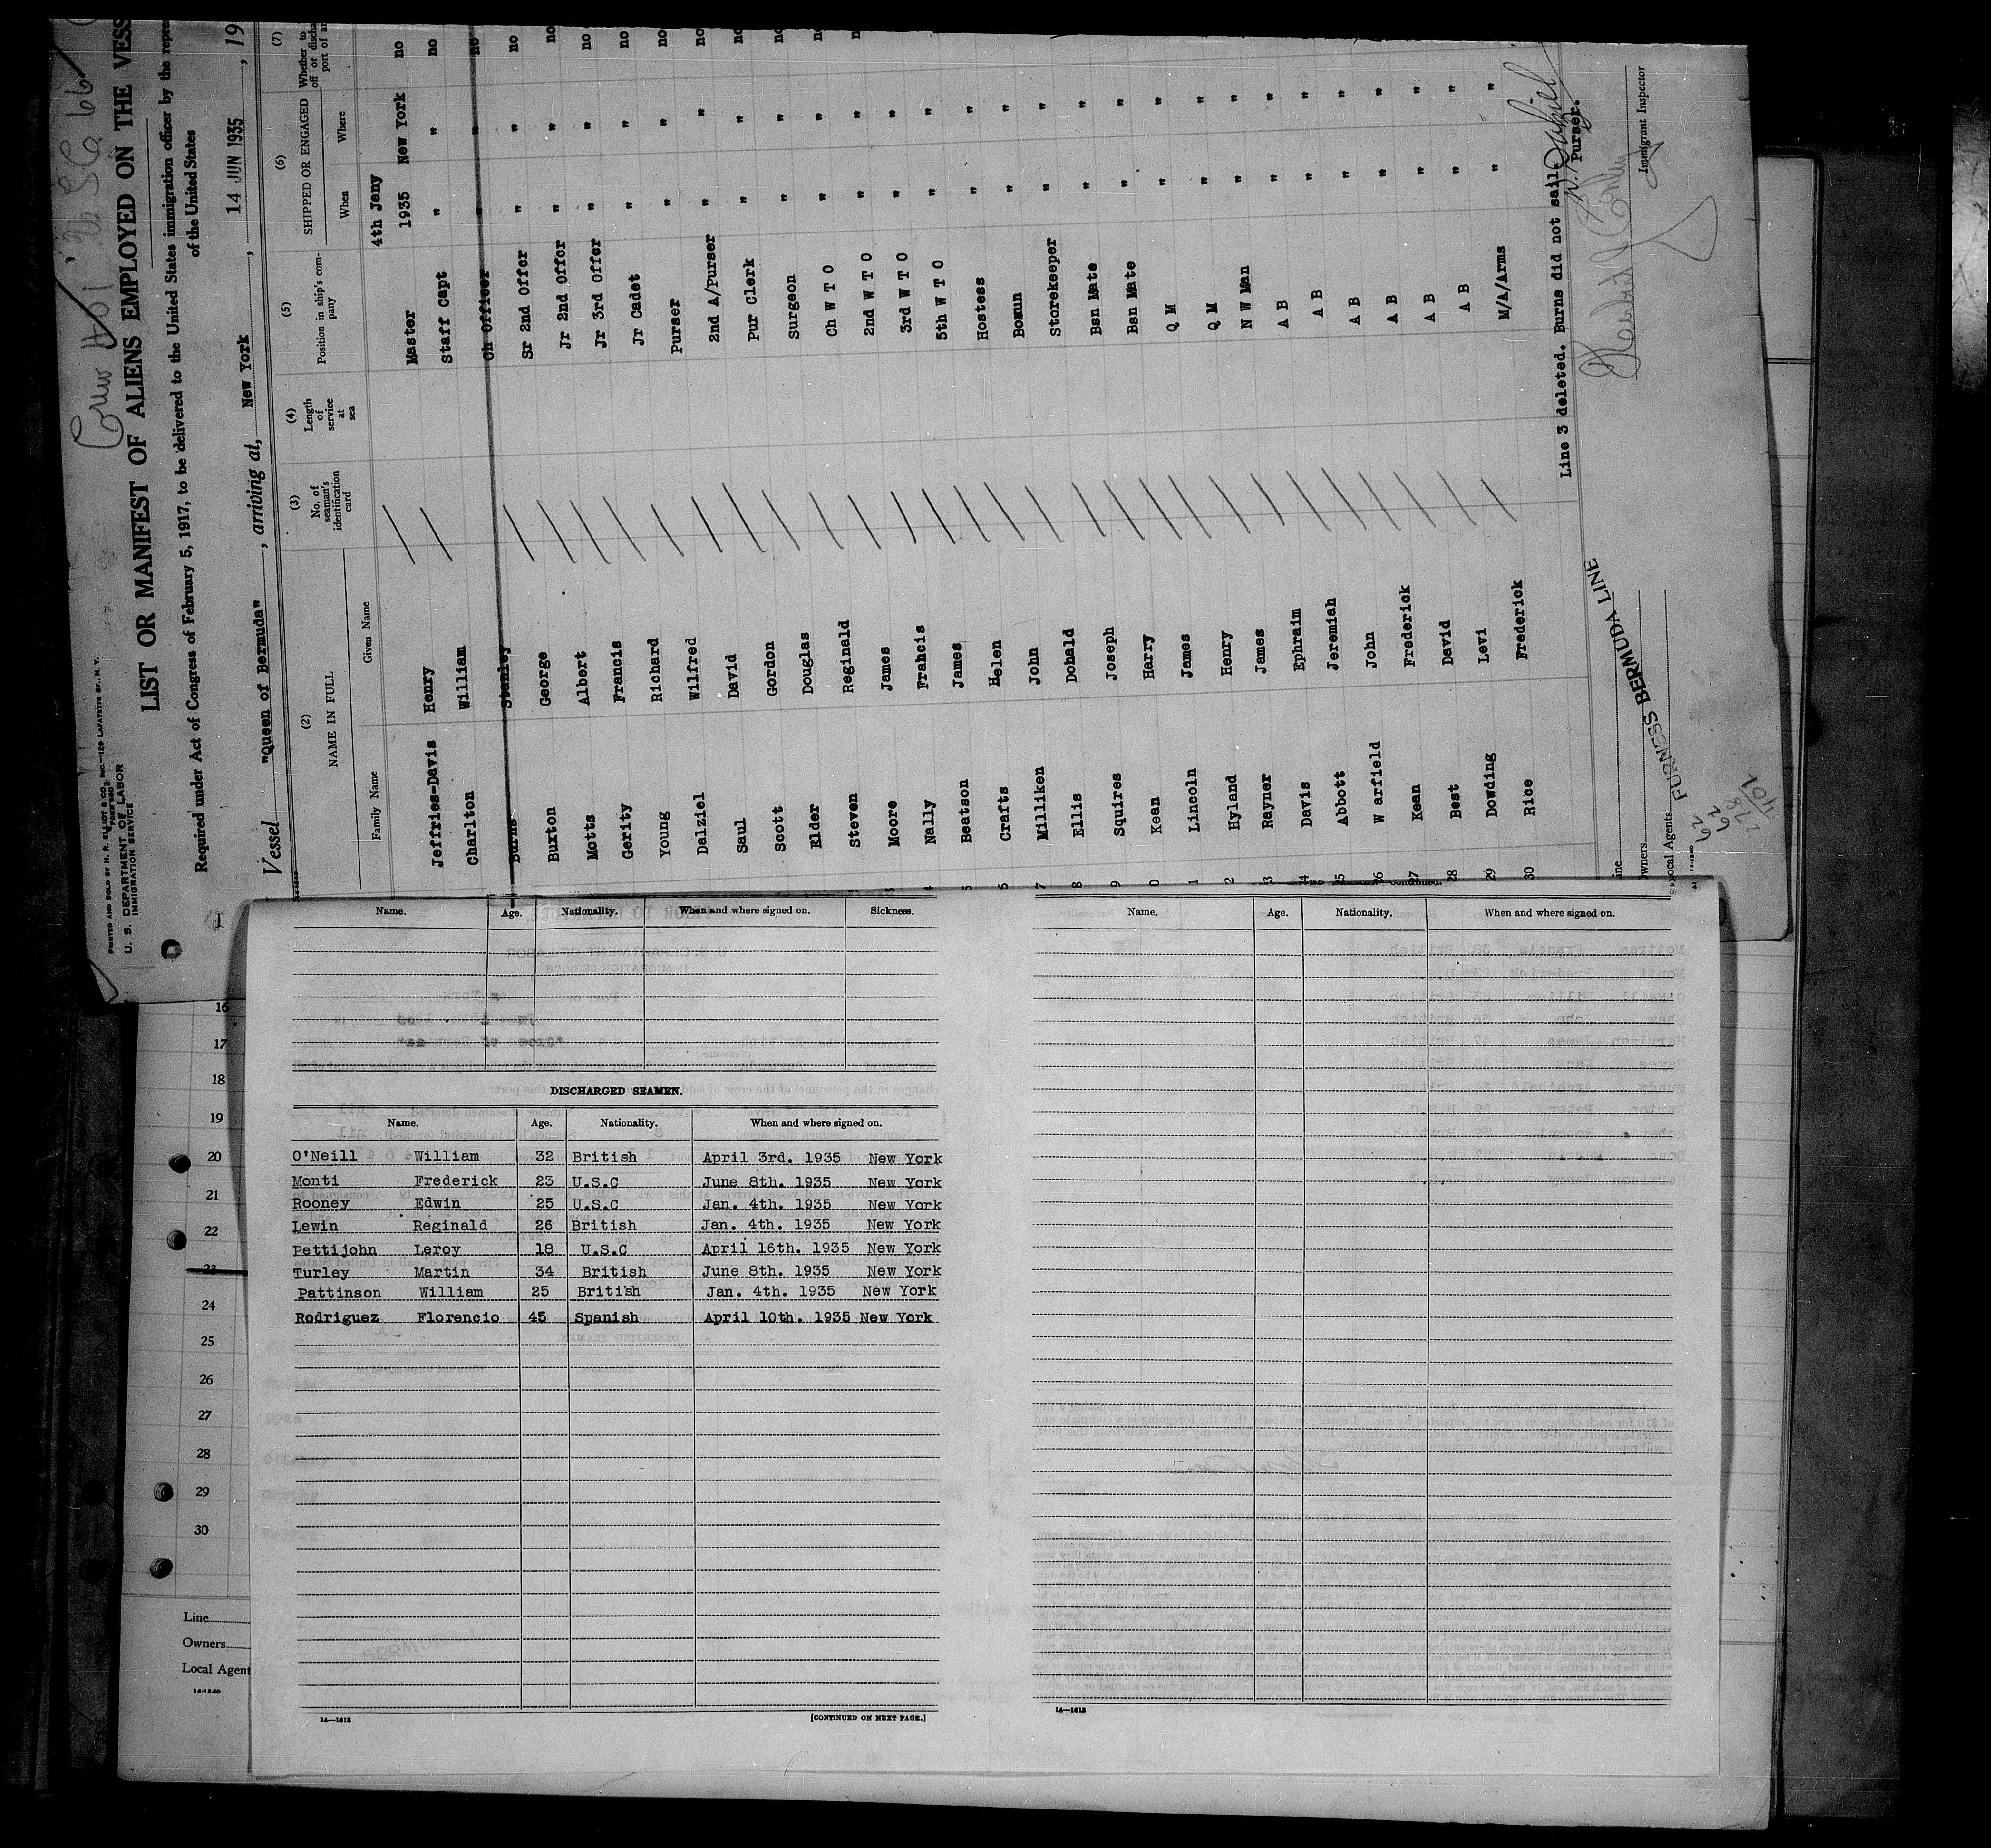 Crew 401
PRINTED AND SOLD BY H. R. ELLIOT & CO., INC.—129 LAFAYETTE ST., N. Y.
U. S. DEPARTMENT OF LABOR
IMMIGRATION SERVICE
LIST OR MANIFEST OF ALIENS EMPLOYED ON THE VESS
Required under Act of Congress of February 5, 1917, to be delivered to the United States immigration officer by the repre
of the United States
Vessel "Queen of Bermuda", arriving at, New York, 14 JUN 1935, 19
(2) (3) (4) (5) (6) (7)
NAME IN FULL No. of seaman's identification card Length of service at sea Position in ship's company SHIPPED OR ENGAGED Whether to
off or discha
port of ar
Family Name Given Name When Where
4th Jany
Jeffries-Davis Henry Master 1935 New York no
Charlton William Staff Capt " " no
Burns Stanley Ch Officer " " no
Buxton George Sr 2nd Offer " " no
Motts Albert Jr 2nd Offer " " no
Gerity Francis Jr 3rd Offer " " no
Young Richard Jr Cadet " " no
Dalziel Wilfred Purser " " no
Saul David 2nd A/Purser " " no
Scott Gordon Pur Clerk " " no
Elder Douglas Surgeon " " no
Steven Reginald Ch W T O " " no
Moore James 2nd W T O " " n
Nally Francis 3rd W T O " "
Beatson James 5th W T O " "
Crafts Helen Hostess " "
Milliken John Bosun " "
Ellis Donald Storekeeper " "
Squires Joseph Bsn Mate " "
Kean Harry Bsn Mate " "
Lincoln James Q M " "
Hyland Henry Q M " "
Rayner James N W Man " "
Davis Ephraim A B " "
25 Abbott Jeremiah A B " "
26 W arfield John A B " "
27 Kean Frederick A B " "
28 Best David A B " "
29 Dowding Levi A B " "
30 Rice Frederick M/A/Arms " "
Line 3 deleted. Burns did not sail.
Purser.
Immigrant Inspector
ine
wners
Local Agents FURNESS BERMUDA LINE
14-1240
62
62
278
401
Name. Age. Nationality. When and where signed on. Sickness.
DISCHARGED SEAMEN.
Name. Age. Nationality. When and where signed on.
O'Neill William 32 British April 3rd. 1935 New York
Monti Frederick 23 U.S.C June 8th. 1935 New York
Rooney Edwin 25 U.S.C Jan. 4th. 1935 New York
Lewin Reginald 26 British Jan. 4th. 1935 New York
Pettijohn Leroy 18 U.S.C April 16th. 1935 New York
Turley Martin 34 British June 8th. 1935 New York
Pattinson William 25 British Jan. 4th. 1935 New York
Rodriguez Florencio 45 Spanish April 10th. 1935 New York
14—1613
[CONTINUED ON NEXT PAGE.]
Name. Age. Nationality. When and where signed on.
14—1613
16
17
18
19
20
21
22
23
24
25
26
27
28
29
30
Line
Owners
Local Agent
14-1240